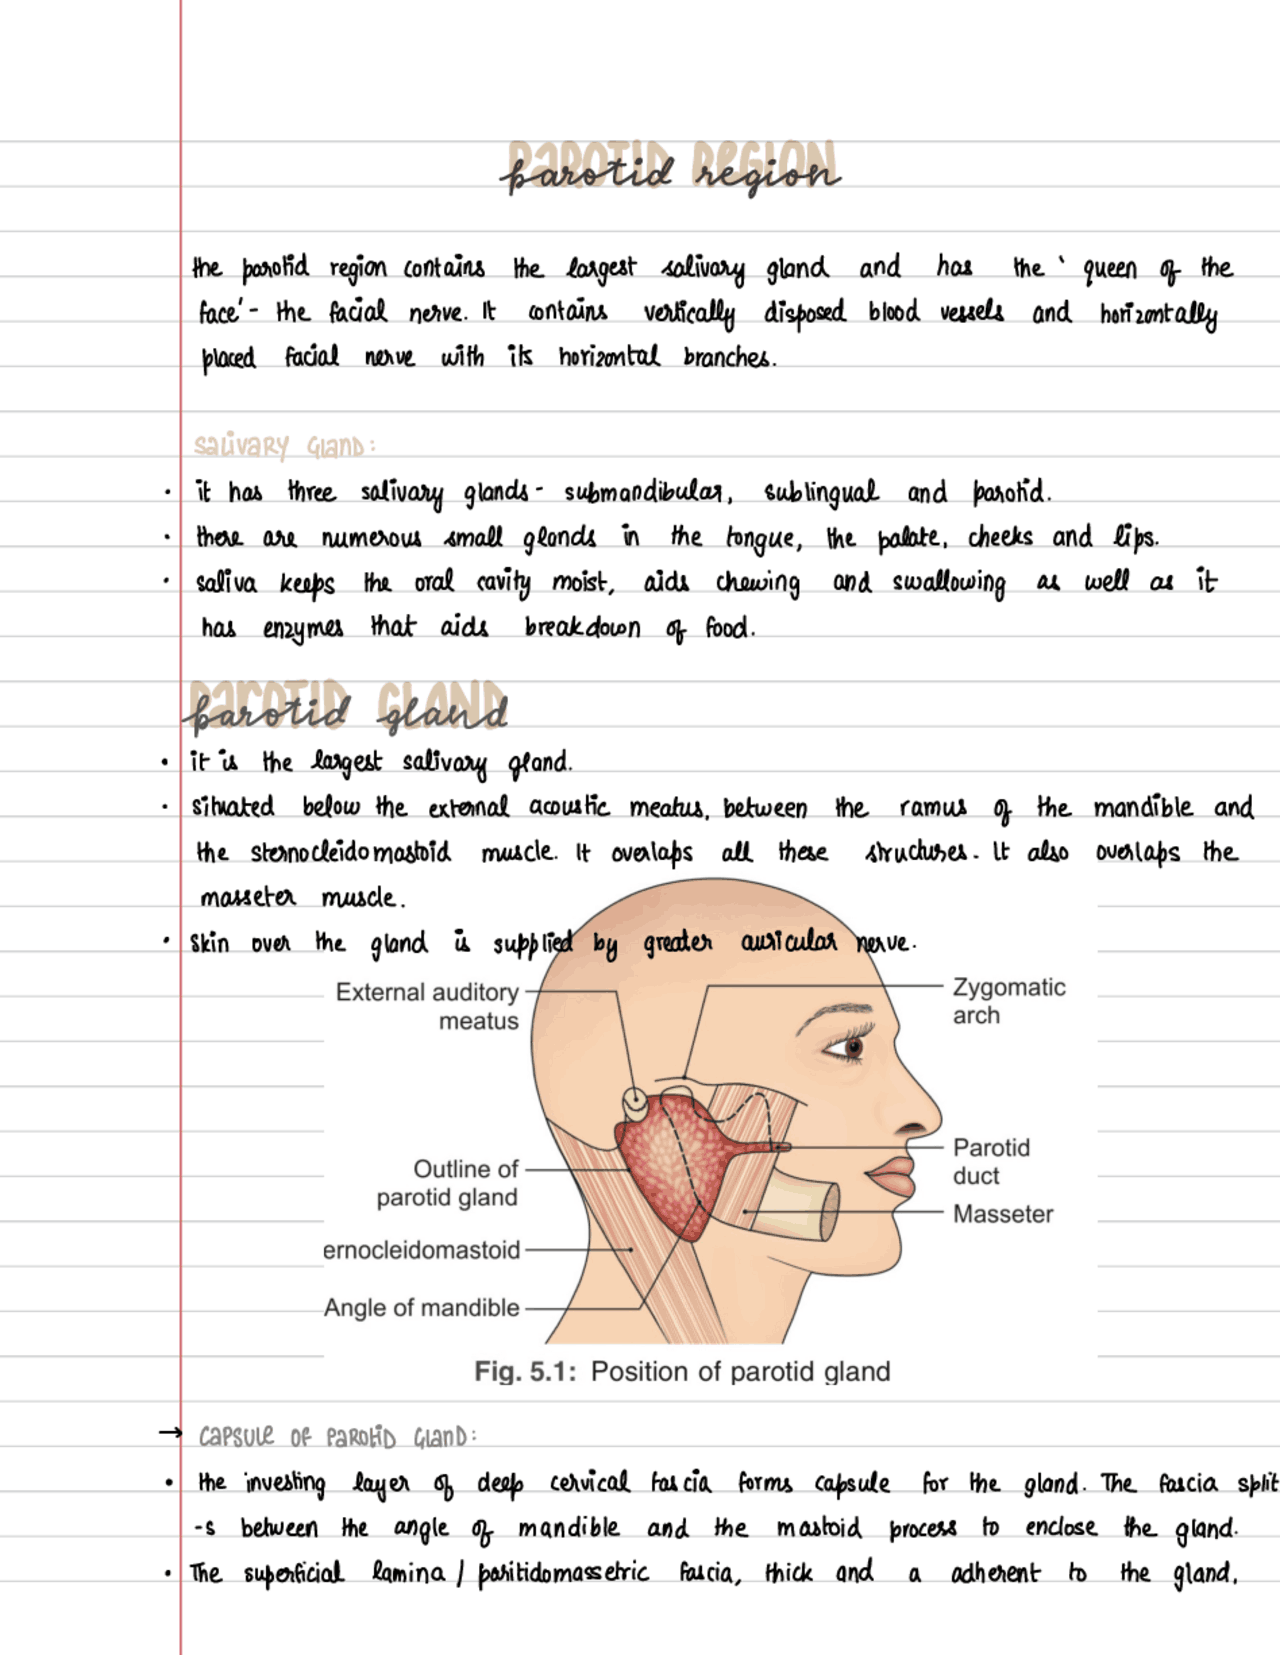 PAROTID REGION
parotid region
the parotid region contains the largest salivary gland and has the ‘queen of the
face’- the facial nerve. It contains vertically disposed blood vessels and horizontally
placed facial nerve with its horizontal branches.
SALIVARY GLAND:
• it has three salivary glands - submandibular, sublingual and parotid.
• there are numerous small glands in the tongue, the palate, cheeks and lips.
• saliva keeps the oral cavity moist, aids chewing and swallowing as well as it
has enzymes that aids breakdown of food.
PAROTID GLAND
parotid gland
• it is the largest salivary gland.
• situated below the external acoustic meatus, between the ramus of the mandible and
the sternocleidomastoid muscle. It overlaps all these structures. It also overlaps the
masseter muscle.
• Skin over the gland is supplied by greater auricular nerve.
External auditory
meatus
Zygomatic
arch
Outline of
parotid gland
Parotid
duct
Masseter
ernocleidomastoid
Angle of mandible
Fig. 5.1: Position of parotid gland
→ CAPSULE OF PAROTID GLAND:
• the investing layer of deep cervical fascia forms capsule for the gland. The fascia split
-s between the angle of mandible and the mastoid process to enclose the gland.
• The superficial lamina / paritidomassetric fascia, thick and a adherent to the gland,